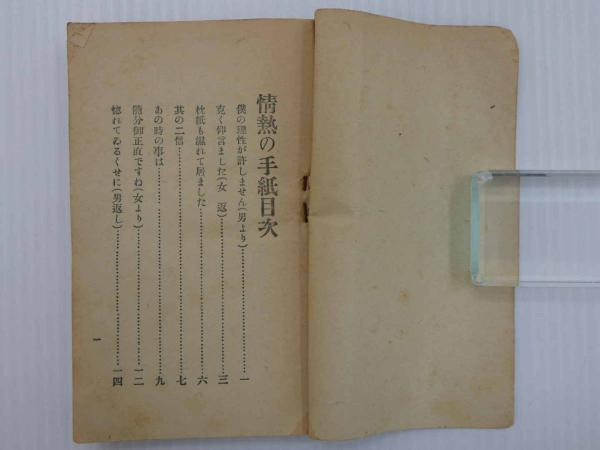 情熱の手紙目次
僕の理性が許しません(男より)……一
克く仰言ました(女 返)……三
枕紙も濡れて居ました……六
其の二信……七
あの時の事は……九
随分御正直ですね(女より)……一二
惚れてゐるくせに(男返し)……一四
一